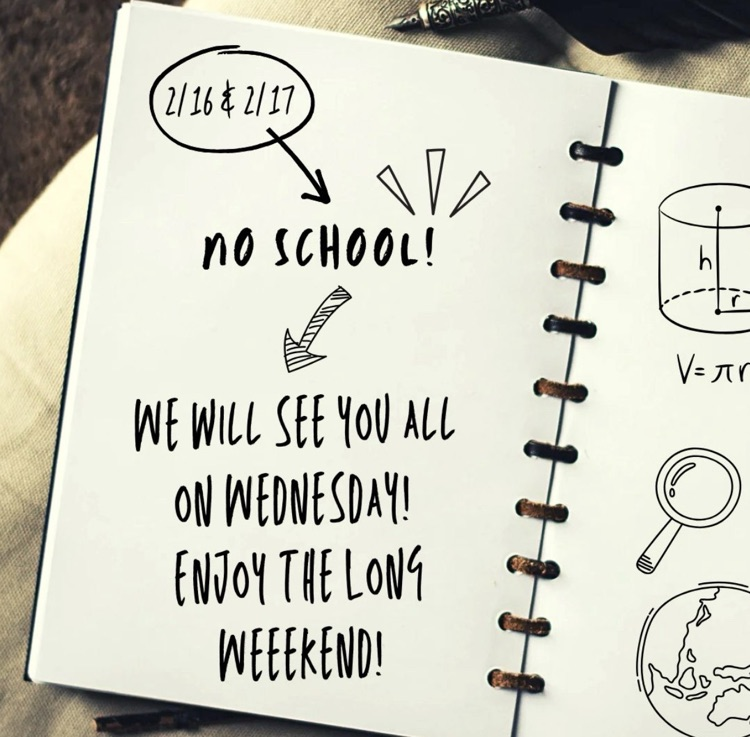 2/16 & 2/17
no SCHOOL!
WE WILL SEE YOU ALL
ON WEDNESDAY!
ENJOY THE LONG
WEEEKEND!
h
r
V= πr